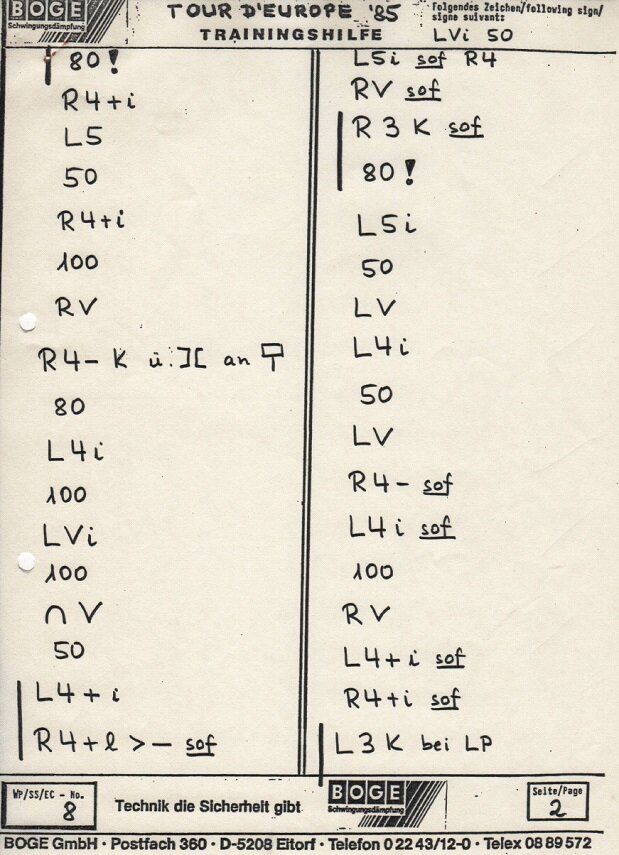 BOGE
Schwingungsdämpfung
TOUR D'EUROPE '85
TRAININGSHILFE
Folgendes Zeichen/following sign/
signe suivant:
LVi 50
80!
R4+i
L5
50
R4+i
100
RV
R4- K ü. ][ an
80
L4i
100
LVi
100
∩ V
50
L4+i
R4+l >- sof
L5i sof R4
RV sof
R3K sof
80!
L5i
50
LV
L4i
50
LV
R4- sof
L4i sof
100
RV
L4+i sof
R4+i sof
L3K bei LP
WP/SS/EC - No.
8
Technik die Sicherheit gibt
BOGE
Schwingungsdämpfung
Seite/Page
2
BOGE GmbH · Postfach 360 · D-5208 Eitorf · Telefon 0 22 43/12-0 · Telex 08 89 572